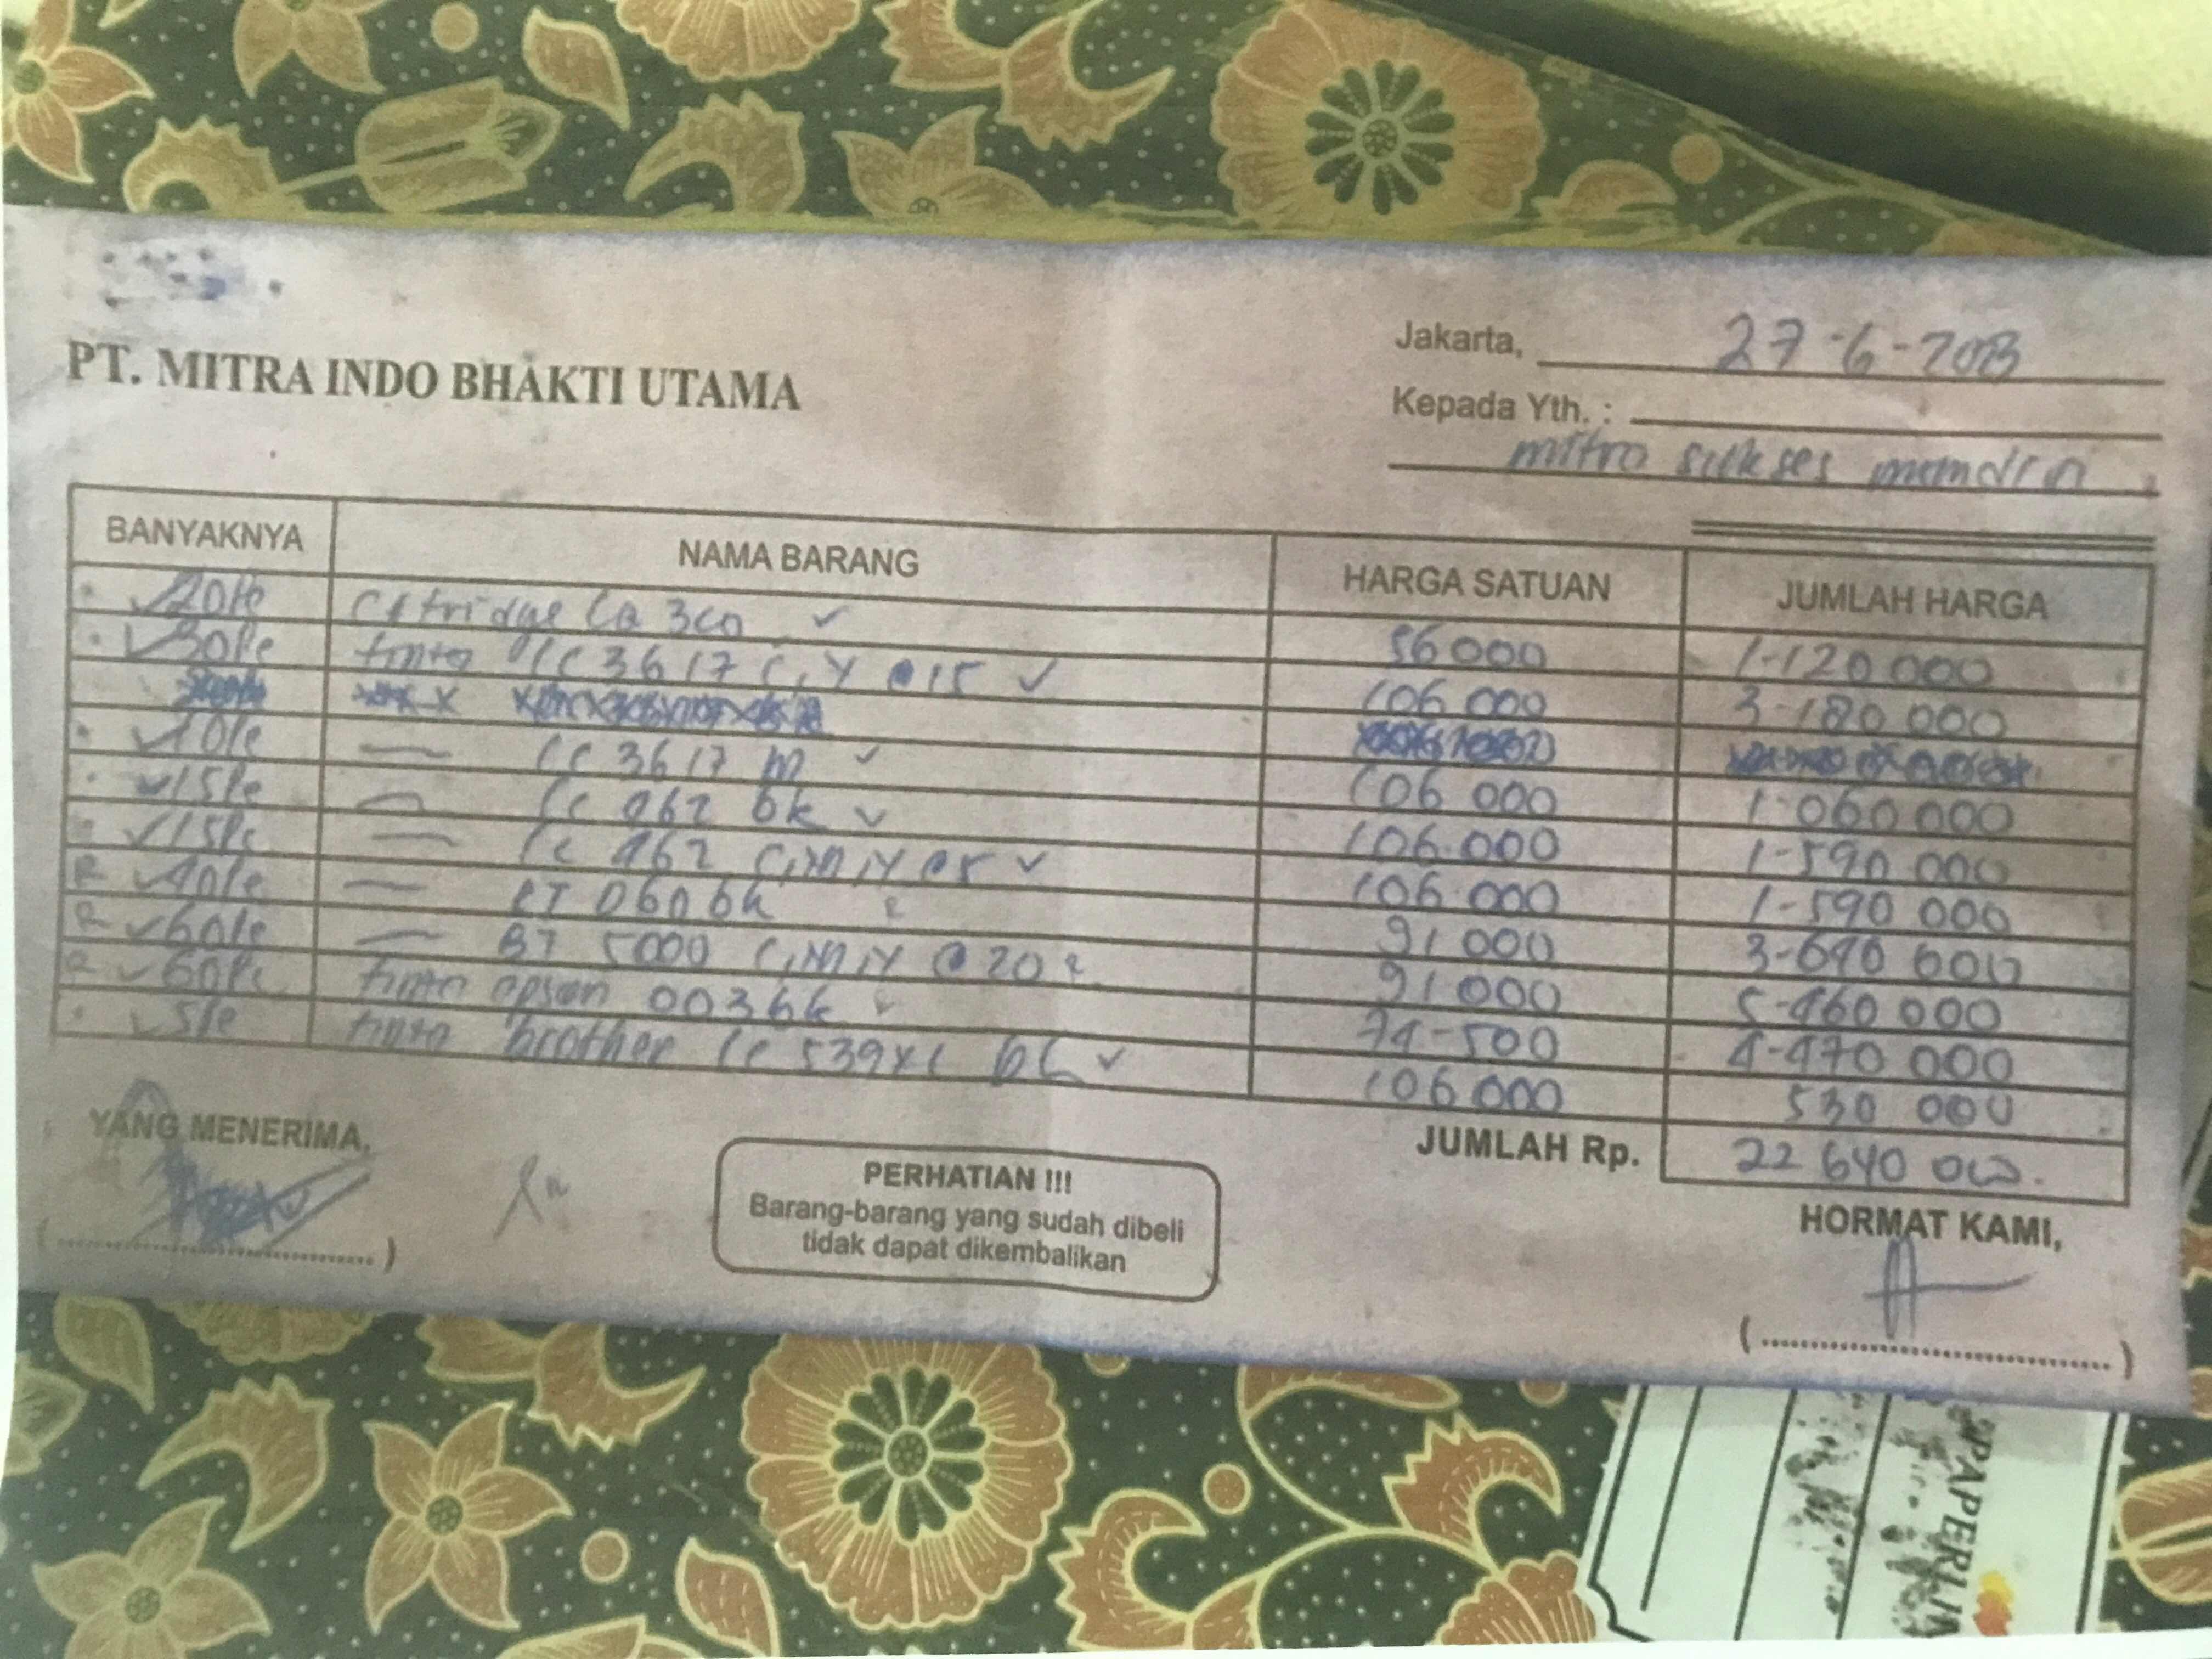 PT. MITRA INDO BHAKTI UTAMA
Jakarta, 27-6-2023
Kepada Yth. :
mitra sukses mandiri
BANYAKNYA NAMA BARANG HARGA SATUAN JUMLAH HARGA
20 Pc Catridge 56 000 1-120 000
30 Pc tinta LC 3617 C,Y @ 15 106 000 3-180 000
10 Pc LC 3617 m 106 000 1-060 000
15 Pc LC 462 bk 106.000 1-590 000
15 Pc LC 462 C,M,Y @ 5 106.000 1-590 000
R 40 Pc BT D60 bk R 91 000 3-640 000
R 60 Pc BT 5000 C,M,Y @ 20 R 91 000 5-460 000
R 60 Pc tinta epson 003 bk 74-500 4-470 000
5 Pc tinta brother LC 539XL bk 106 000 530 000
JUMLAH Rp. 22 640 000.
YANG MENERIMA,
PERHATIAN !!!
Barang-barang yang sudah dibeli
tidak dapat dikembalikan
HORMAT KAMI,
PAPERLIN